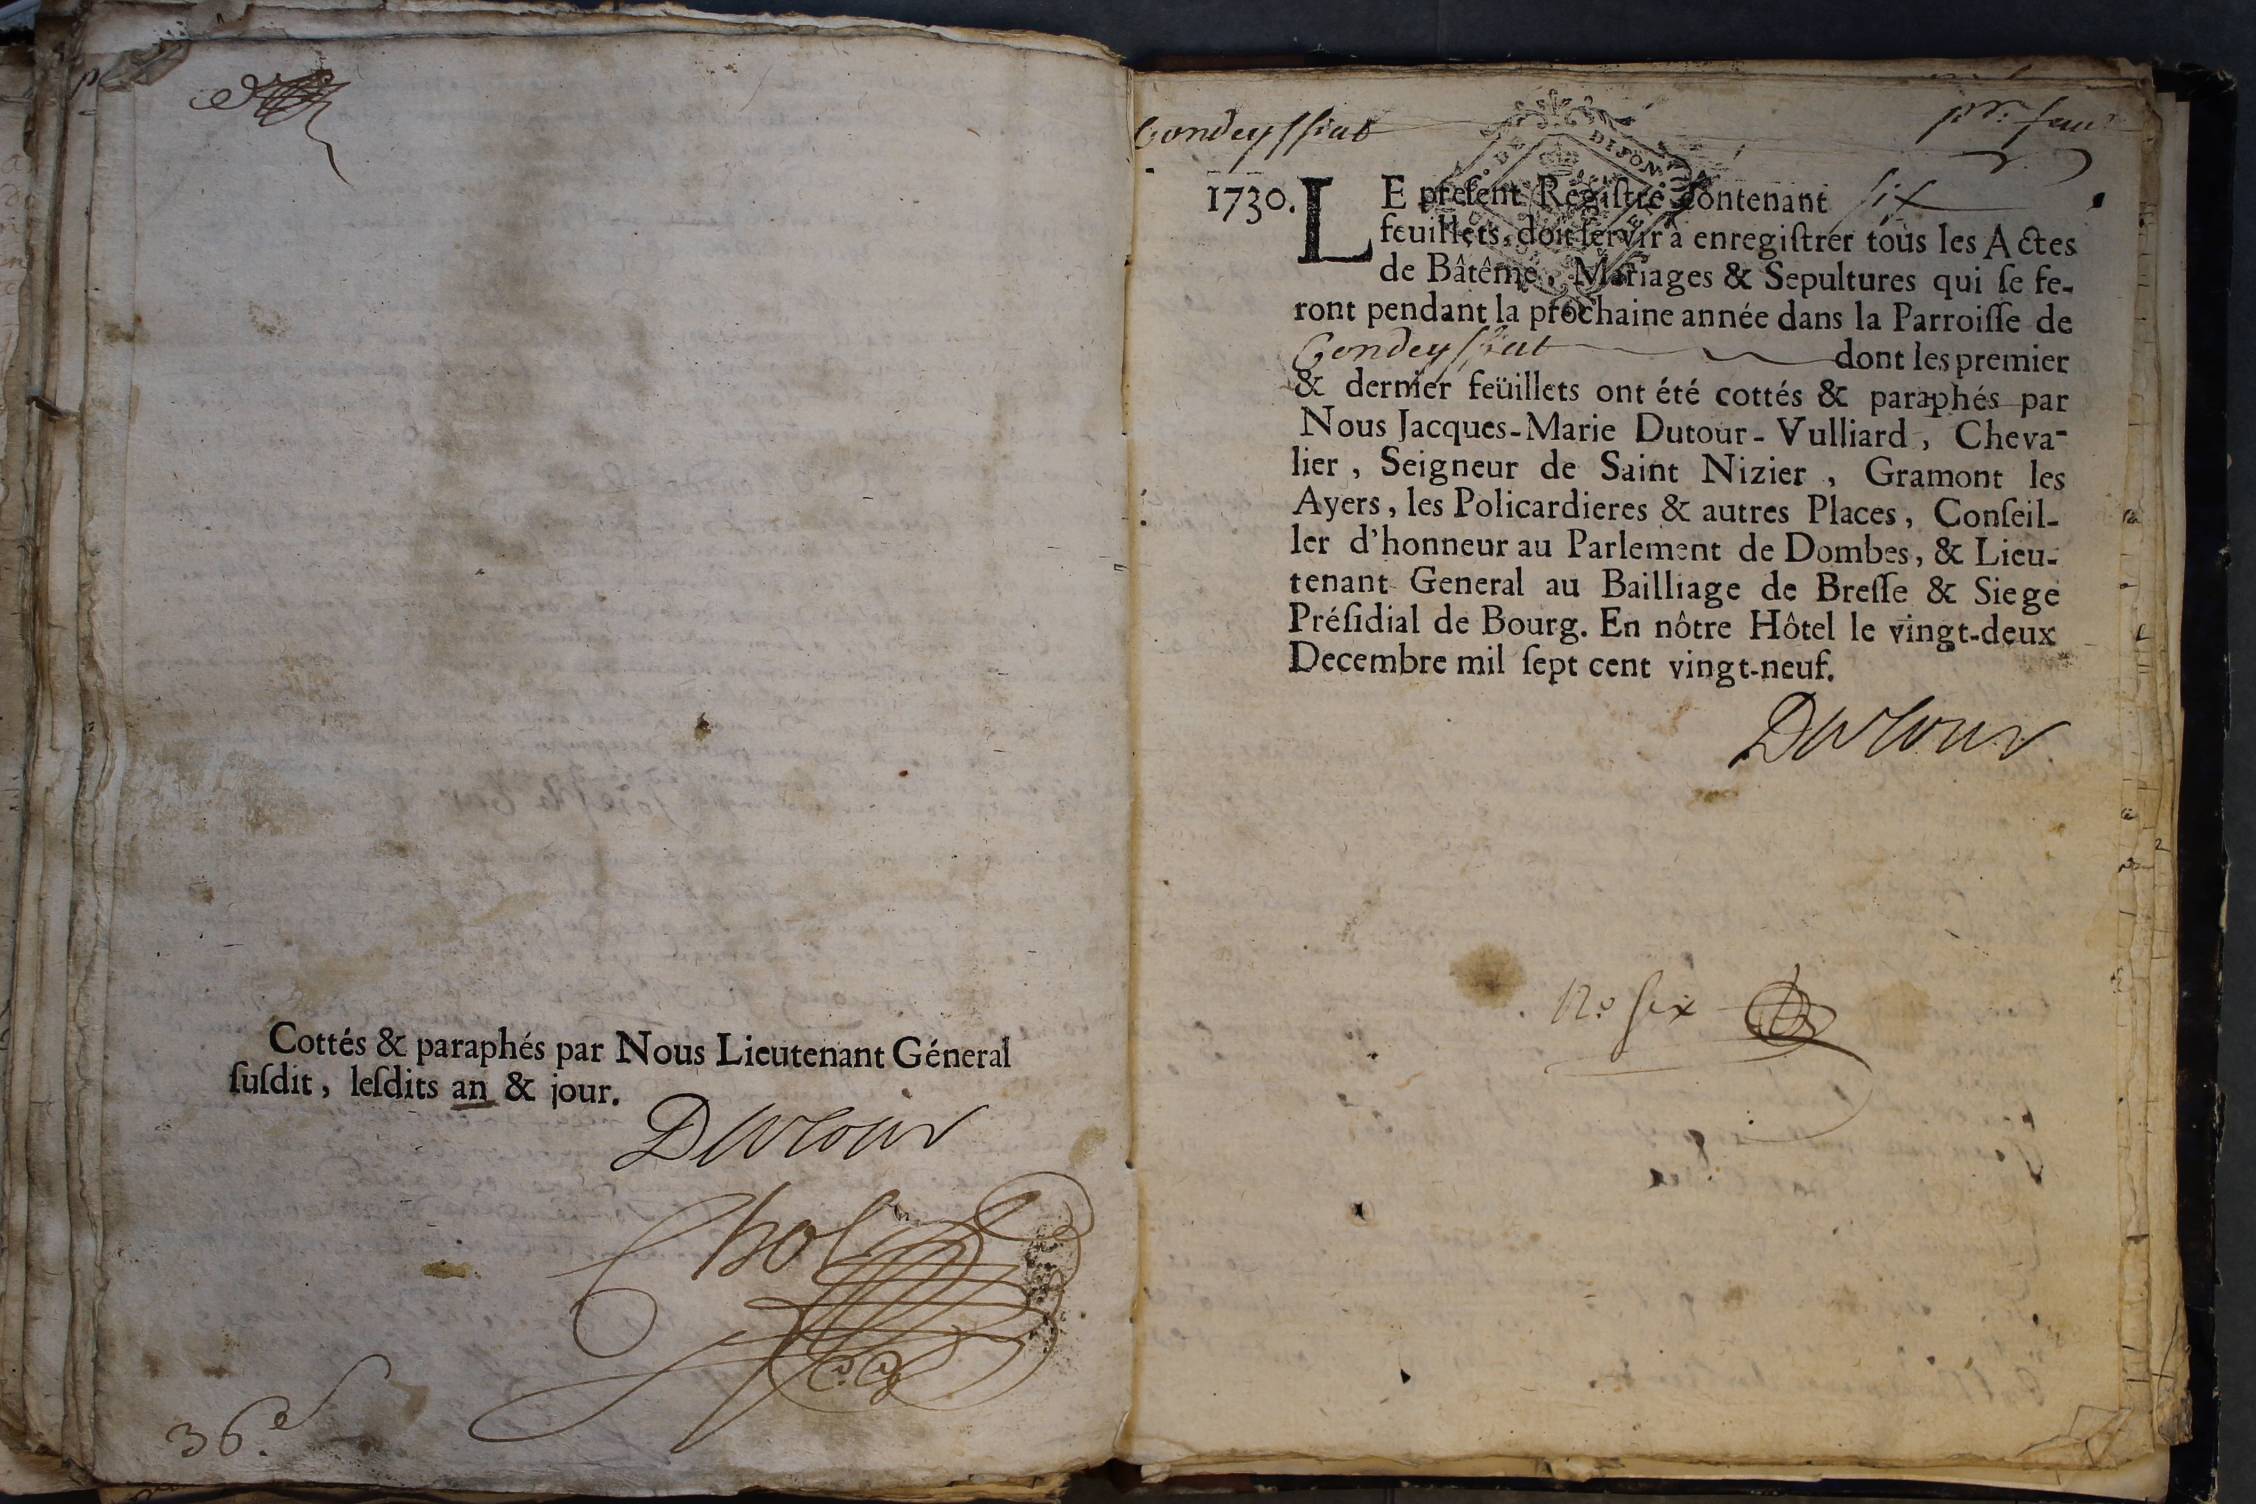 Cottés & paraphés par Nous Lieutenant Géneral
ſuſdit, leſdits an & jour.
Dutour
Chol
36.e
Condeyssiat
pr. feuil
DE DIJON
1730. LE preſent Regiſtre contenant six
feuillets, doit ſervir à enregiſtrer tous les Actes
de Bâtême, Mariages & Sepultures qui ſe fe-
ront pendant la prochaine année dans la Parroiſſe de
Condeyssiat dont les premier
& dernier feüillets ont été cottés & paraphés par
Nous Jacques-Marie Dutour-Vulliard, Cheva-
lier, Seigneur de Saint Nizier, Gramont les
Ayers, les Policardieres & autres Places, Conſeil-
ler d'honneur au Parlement de Dombes, & Lieu-
tenant General au Bailliage de Breſſe & Siege
Préſidial de Bourg. En nôtre Hôtel le vingt-deux
Decembre mil ſept cent vingt-neuf.
Dutour
No six